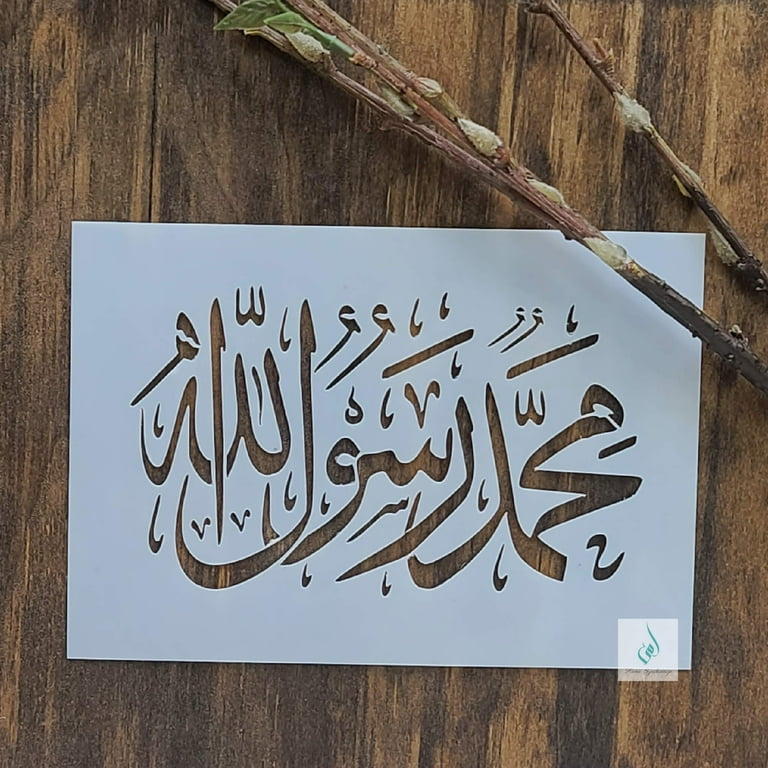 مُحَمَّدٌ رَسُوْلُ اللّٰهِ